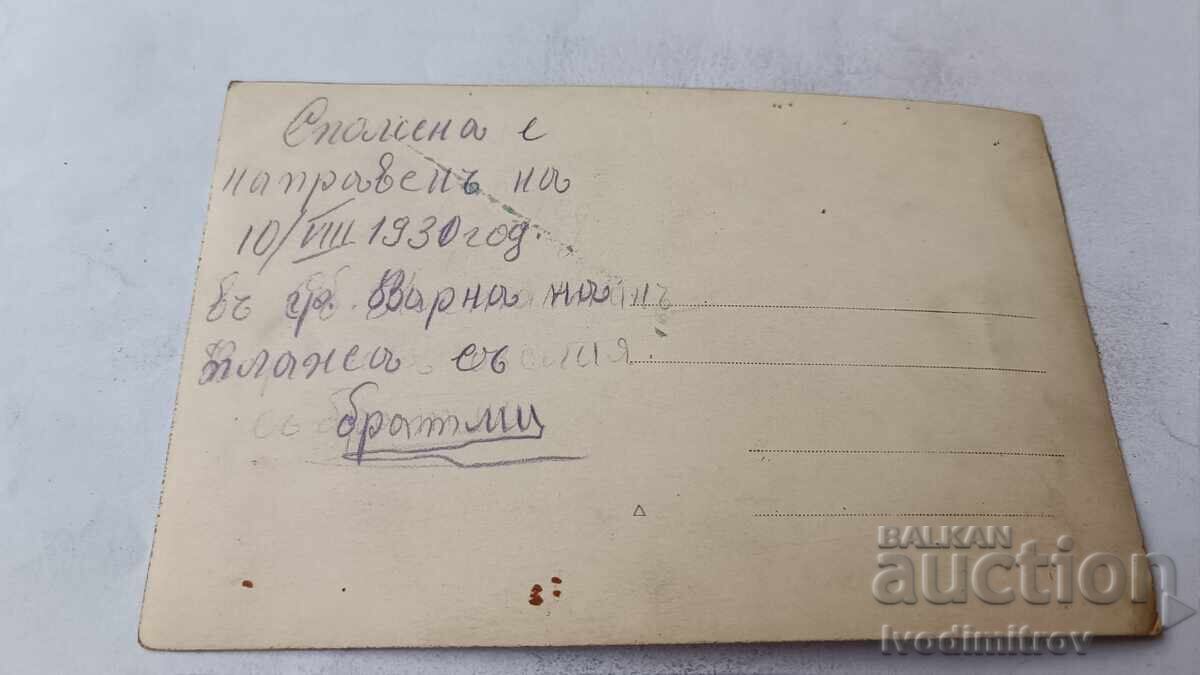 Спомена е
направенъ на
10/VIII 1930 год.
въ гр. Варна на
плажа съ
братми
BALKAN
auction
Ivodimitrov